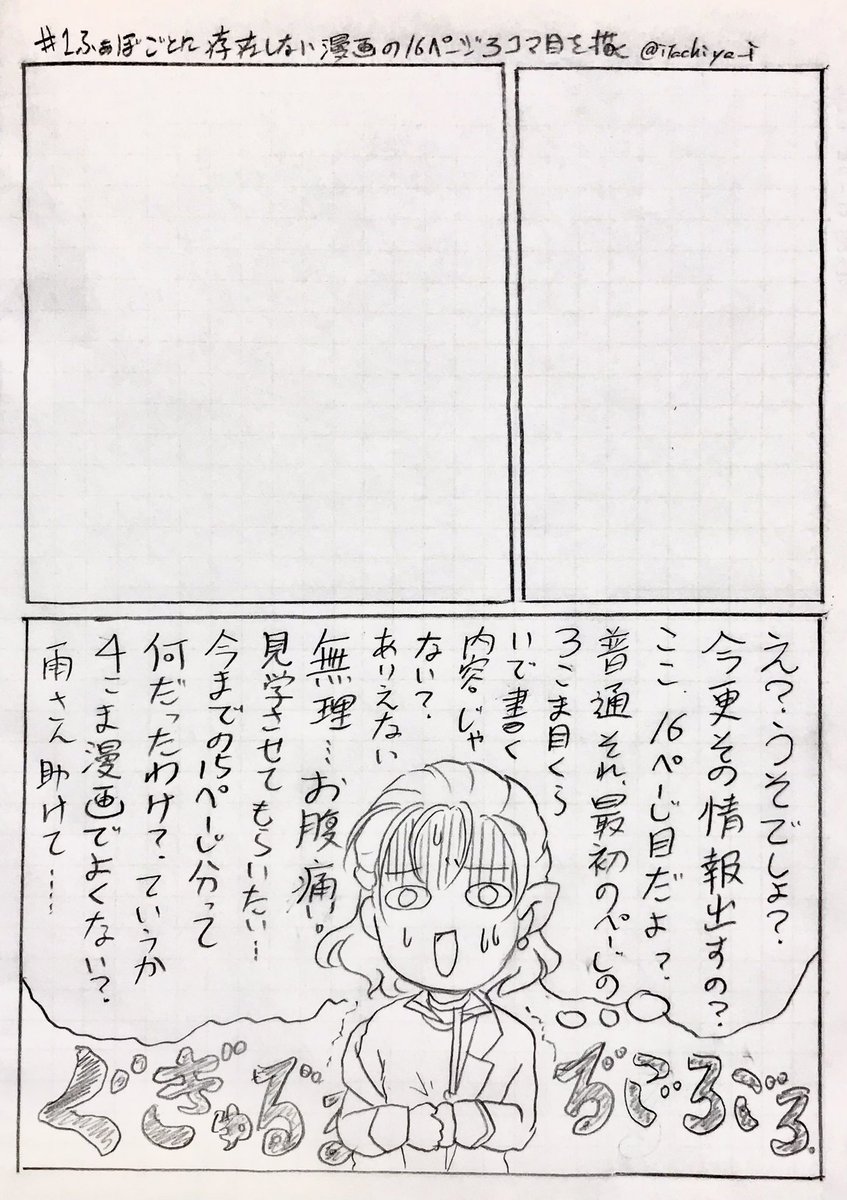 #1ふぁぼごとに存在しない漫画の16ページ3コマ目を描く @itachiya_i
え?うそでしょ?
今更その情報出すの?
ここ、16ページ目だよ?
普通それ、最初のページの
3こま目くら
いで書く
内容じゃ
ない?
ありえない
無理…お腹痛い。
見学させてもらいたい…
今までの15ページ分って
何だったわけ?ていうか
4こま漫画でよくない?
雨さん助けて……
ぐぎゅるる
ごろごろ